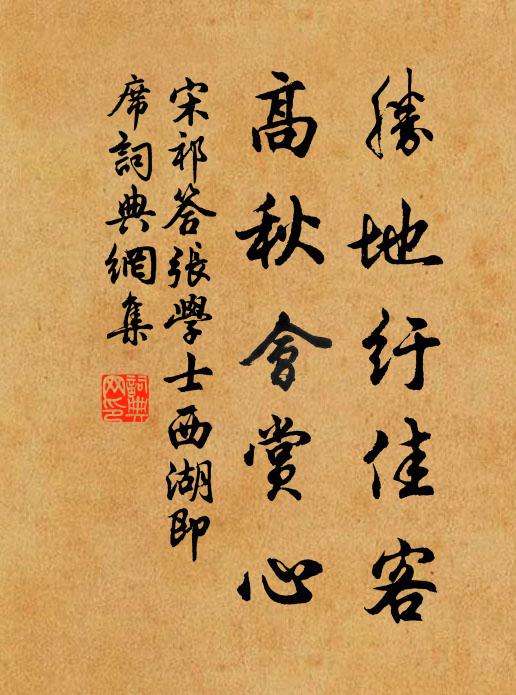 勝地紆佳客
高秋會賞心
宋祁答張學士西湖即
席詞典網集
詞典网印